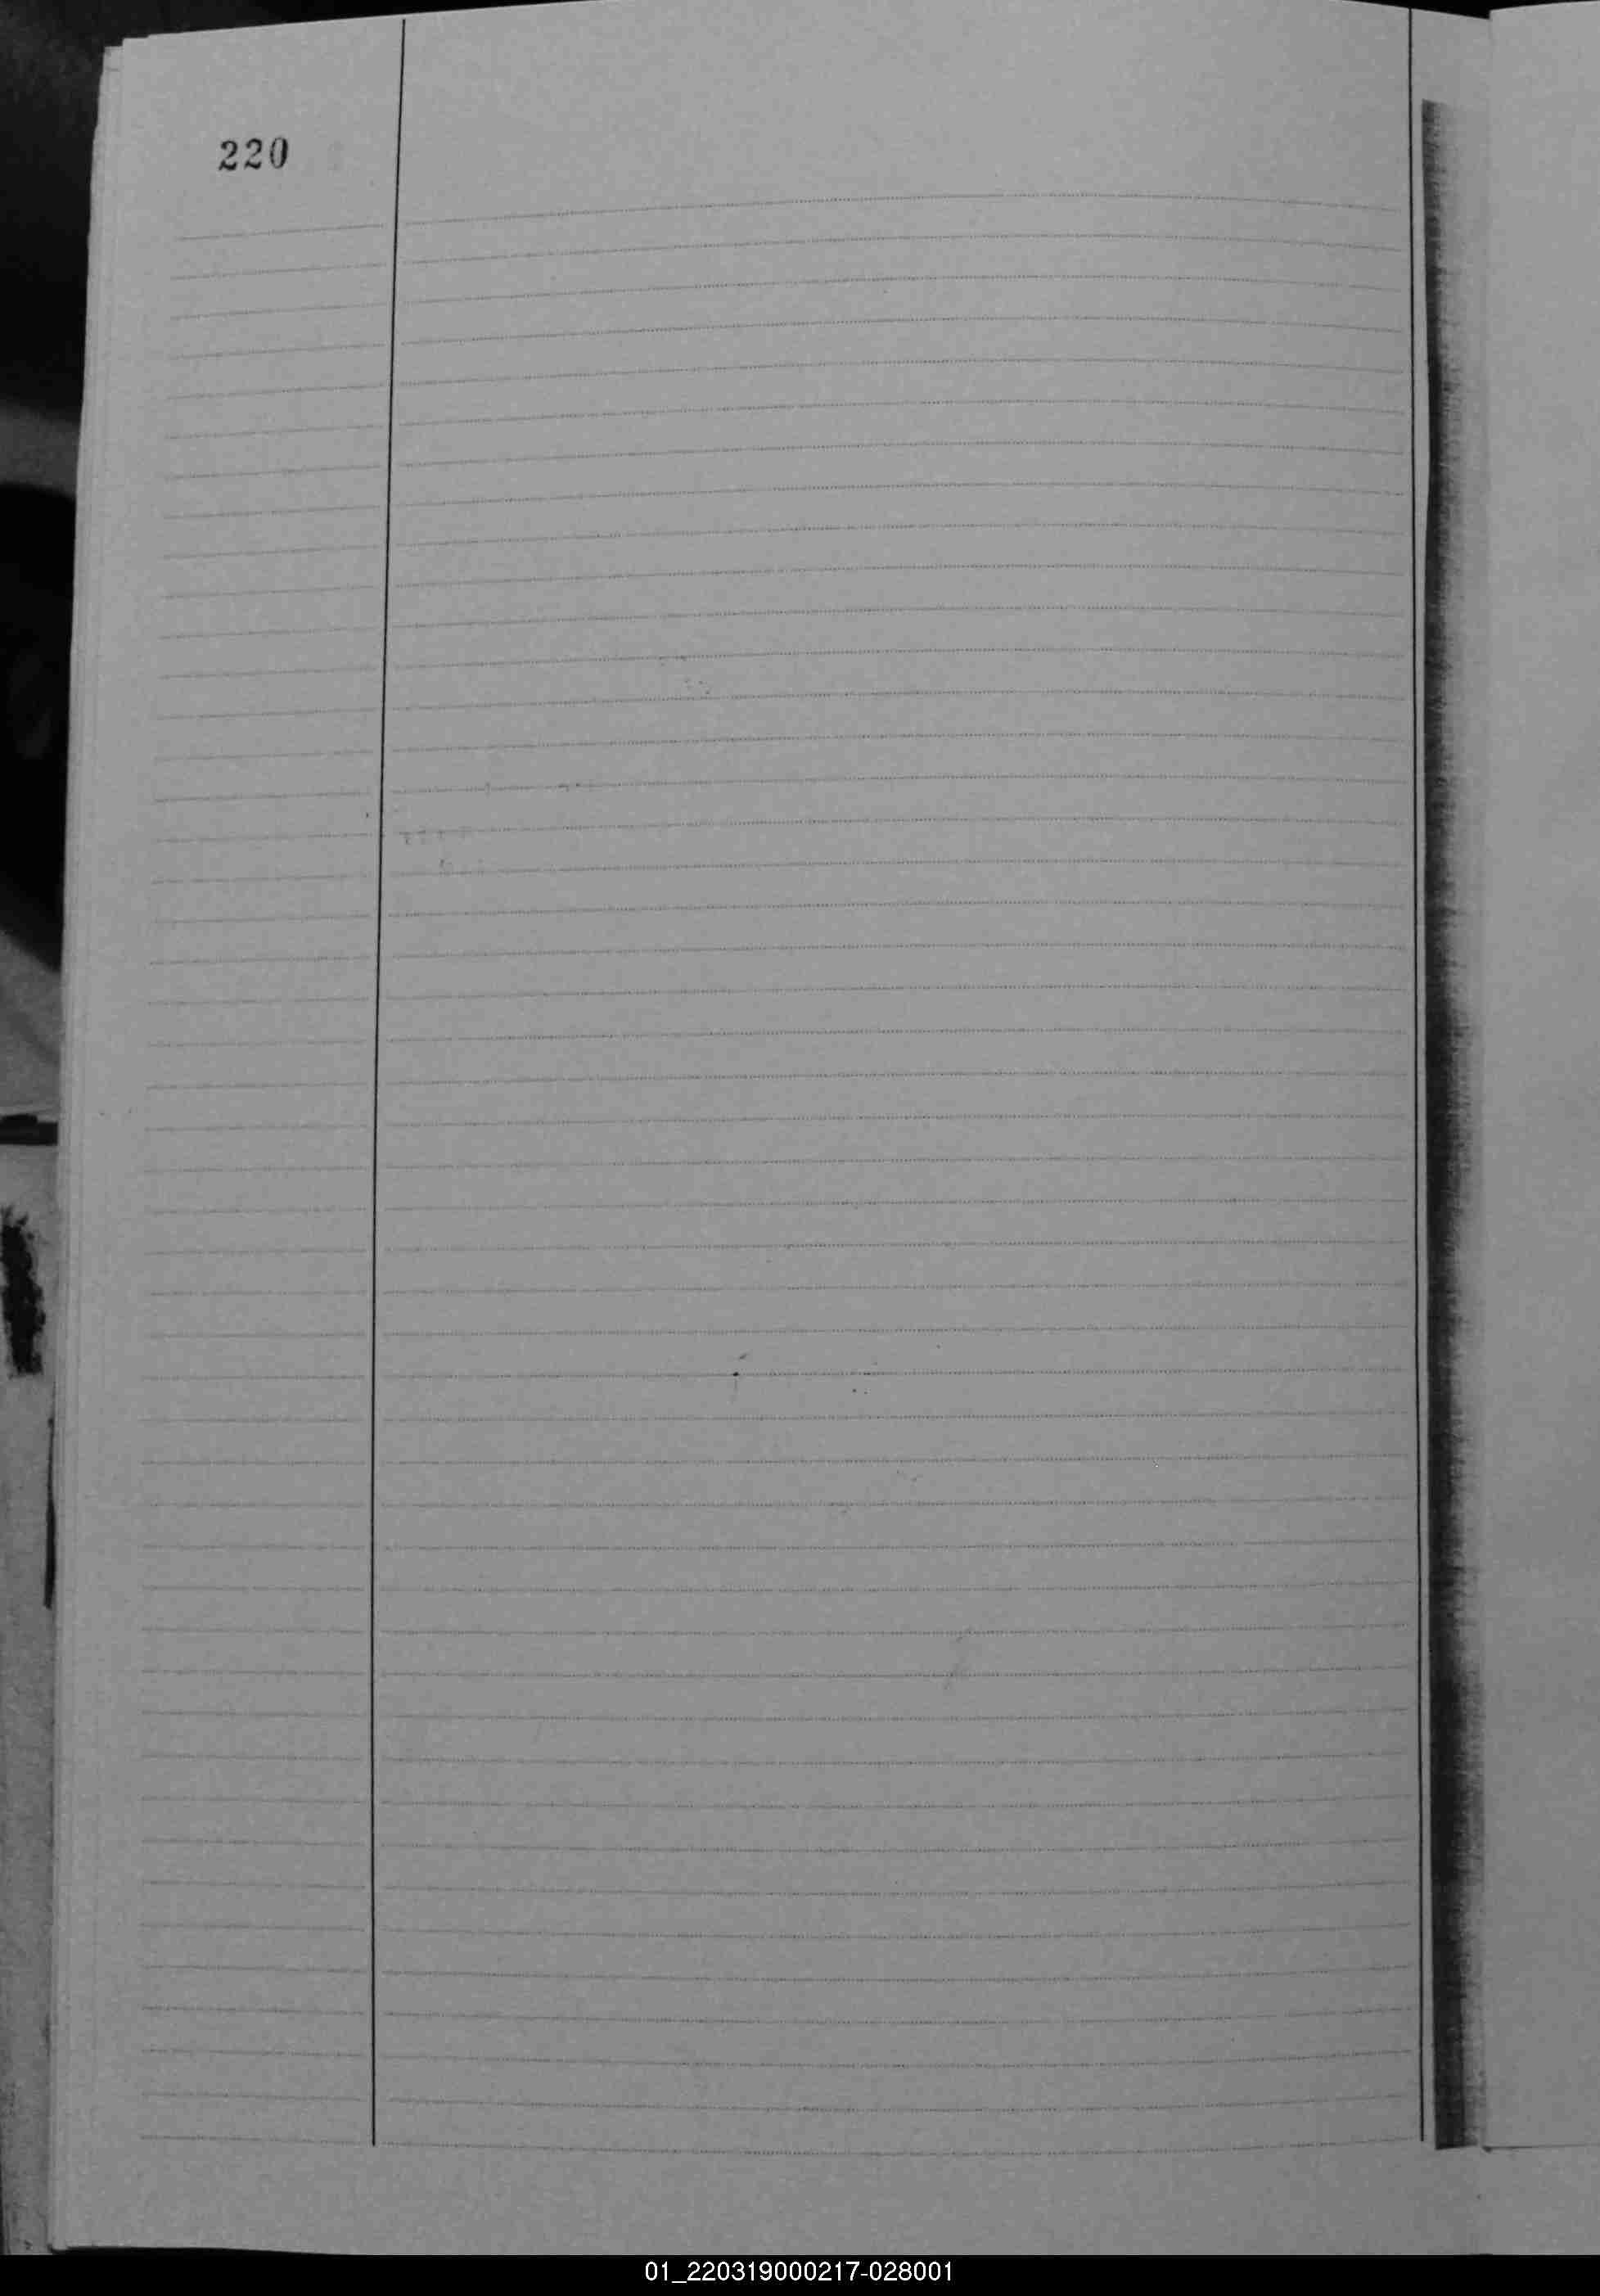 220
01_220319000217-028001